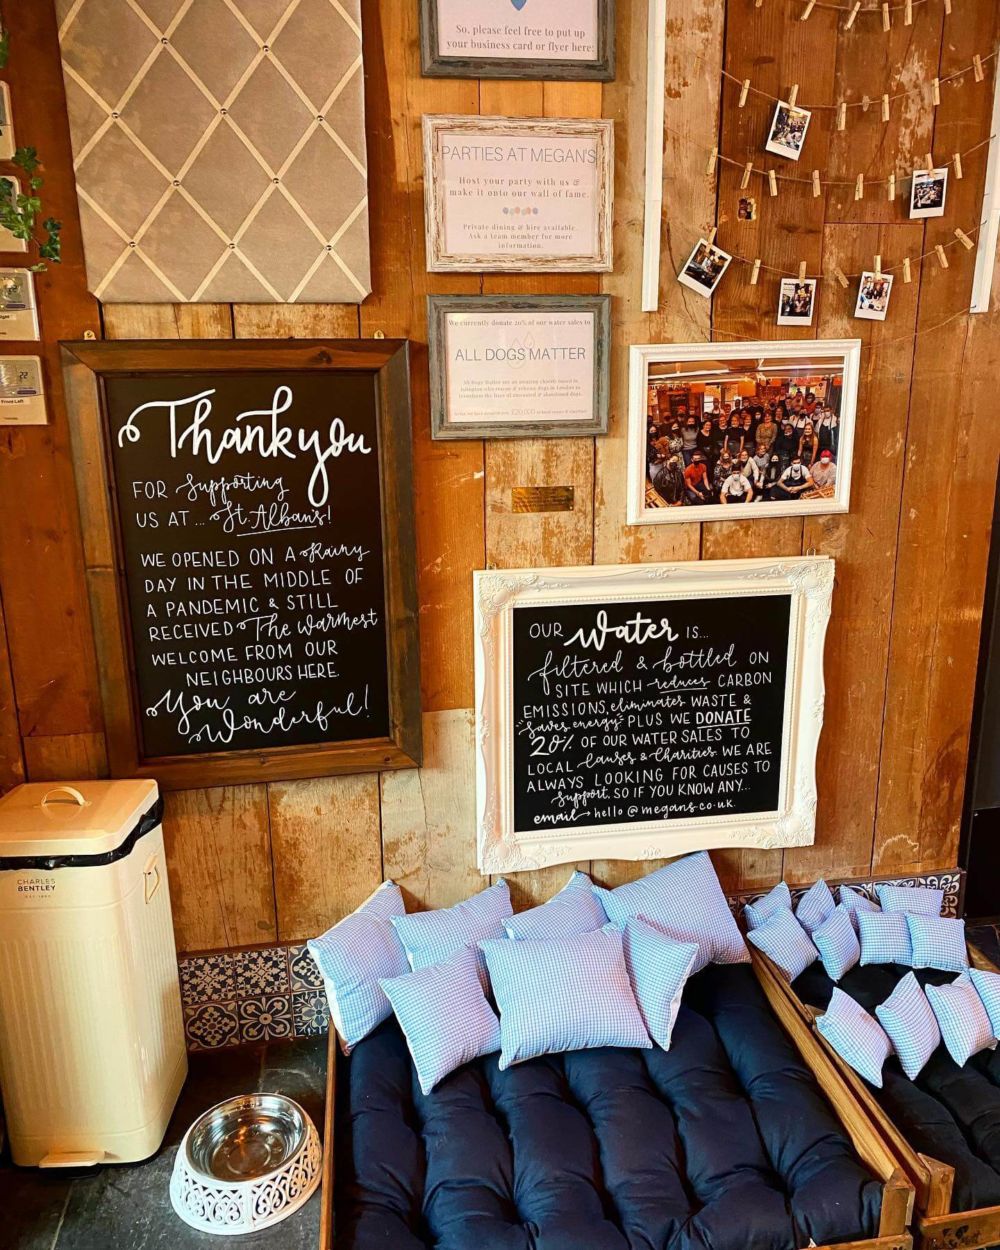 So, please feel free to put up
your business card or flyer here:
PARTIES AT MEGAN'S
Host your party with us &
make it onto our wall of fame.
Private dining & hire available.
Ask a team member for more
information.
We currently donate 20% of our water sales to
ALL DOGS MATTER
Thank you
FOR Supporting
US AT... St. Alban's!
WE OPENED ON A Rainy
DAY IN THE MIDDLE OF
A PANDEMIC & STILL
RECEIVED The Warmest
WELCOME FROM OUR
NEIGHBOURS HERE.
You are
Wonderful!
OUR Water IS...
filtered & bottled ON
SITE WHICH reduces CARBON
EMISSIONS, eliminates WASTE &
"saves energy" PLUS WE DONATE
20% OF OUR WATER SALES TO
LOCAL Causes & Charities. WE ARE
ALWAYS LOOKING FOR CAUSES TO
Support. SO IF YOU KNOW ANY...
email → hello@megans.co.uk
Front Left
22
CHARLES
BENTLEY